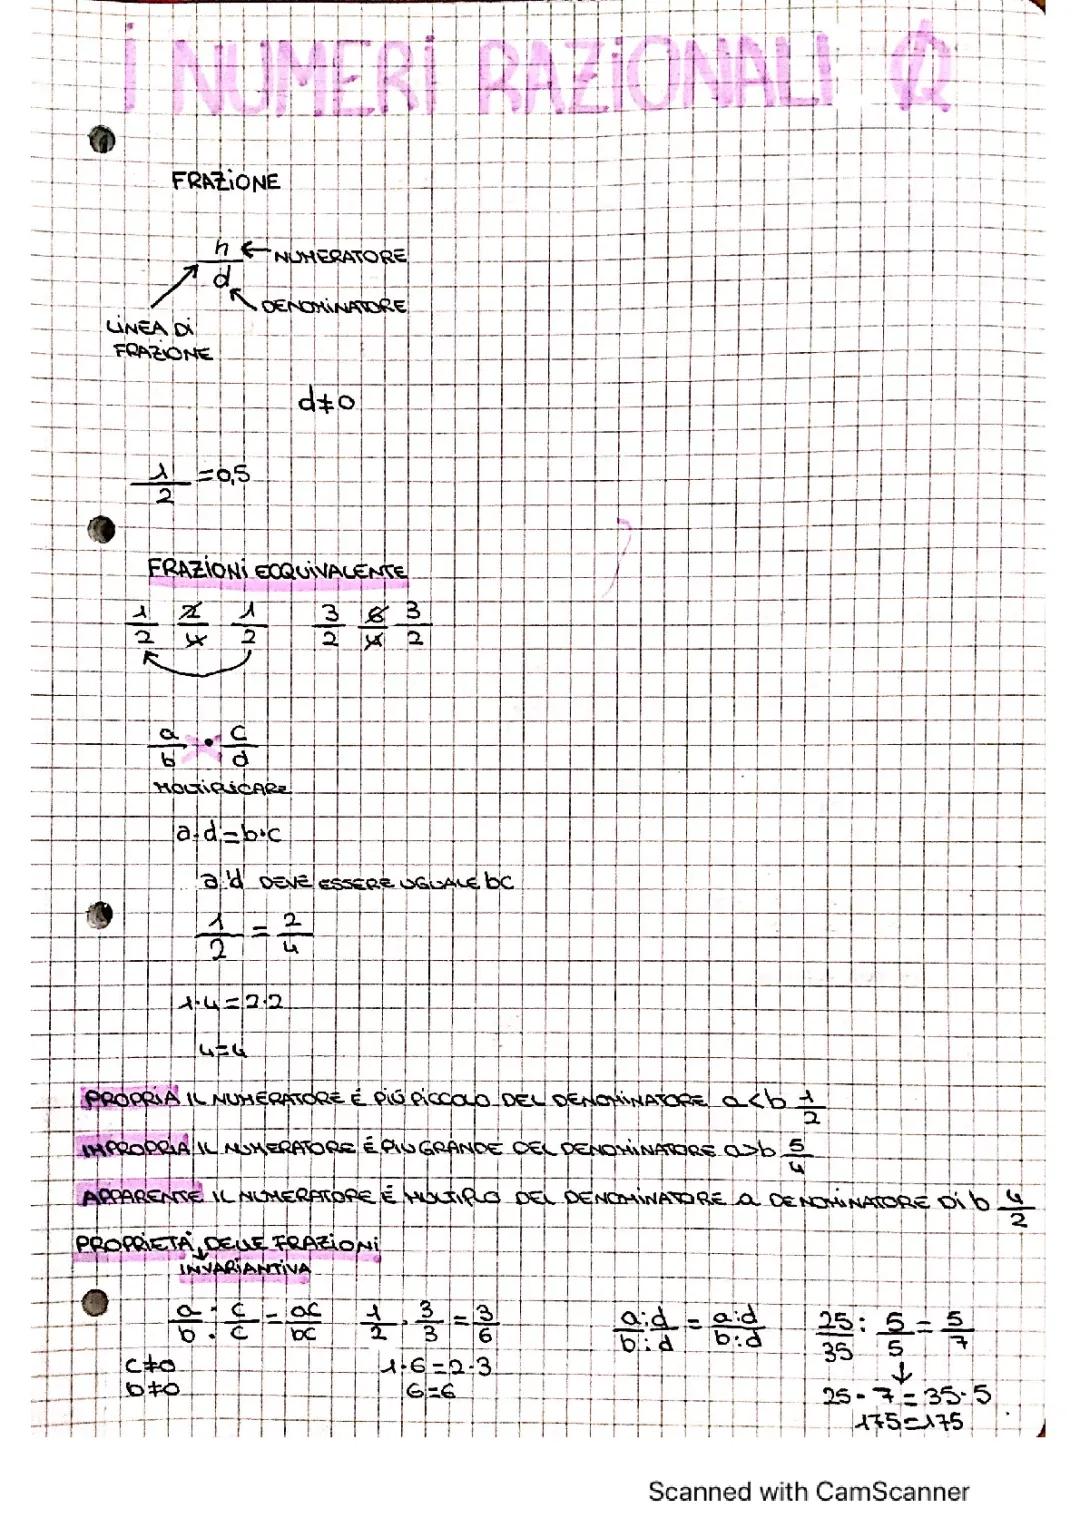 I NUMERI RAZIONALI Q
FRAZIONE
n ← NUMERATORE
d
DENOMINATORE
LINEA DI
FRAZIONE
d≠0
1/2 = 0,5
FRAZIONI EQQUIVALENTE
1/2 2/4 1/2 3/2 6/4 3/2
a/b · c/d
MOLTIPLICARE
a·d=b·c
a·d DEVE ESSERE UGUALE bc
1/2 = 2/4
1·4=2·2
4=4
PROPRIA IL NUMERATORE É PIÚ PICCOLO DEL DENOMINATORE a<b 1/2
IMPROPRIA IL NUMERATORE É PIU GRANDE DEL DENOMINATORE a>b 5/4
APPARENTE IL NUMERATORE É MULTIPLO DEL DENOMINATORE a DENOMINATORE DI b 4/2
PROPRIETÀ DELLE FRAZIONI
INVARIANTIVA
a/b · c/c = ac/bc 1/2 · 3/3 = 3/6 a:d/b:d = a:d/b:d 25/35 : 5/5 = 5/7
c≠0 1·6=2·3
b≠0 6=6 25·7=35·5
175=175
Scanned with CamScanner